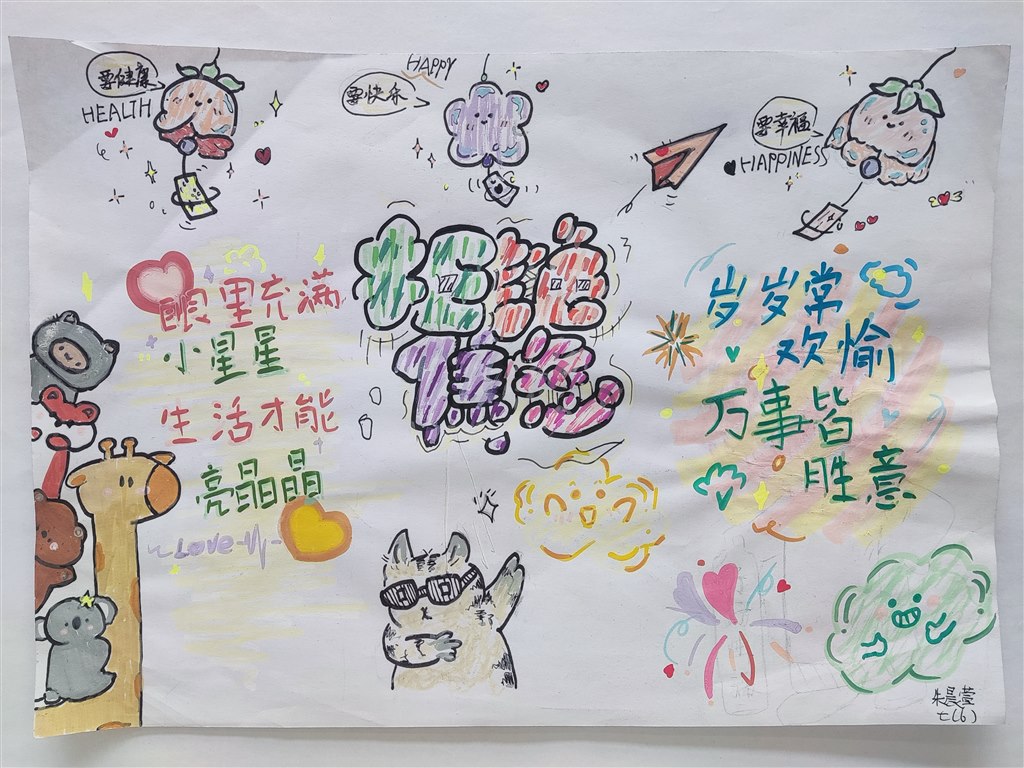 要健康
HEALTH
HAPPY
要快乐
要幸福
HAPPINESS
拒绝
焦虑
眼里充满
小星星
生活才能
亮晶晶
Love
岁岁常
欢愉
万事皆
胜意
七(6)